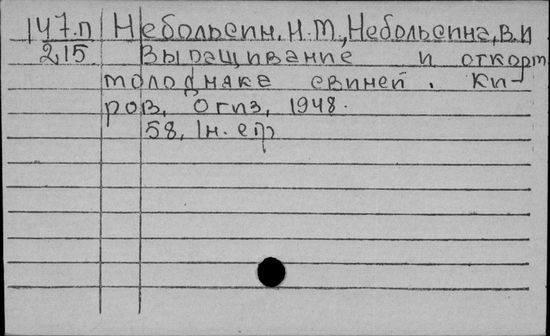 147.П Небольсин, Н.М., Небольсина, В.И
215 Выращивание и откорм
молодняка свиней. Ки-
ров, Огиз, 1948.
58, 1н. стр